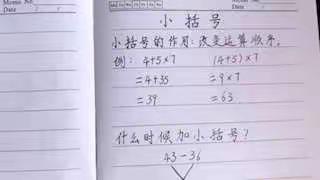 Memo No.
Date / /
Memo No.
Date / /
小括号
小括号的作用:改变运算顺序。
例: 4+5×7 (4+5)×7
=4+35 =9×7
=39 =63
什么时候加小括号?
43-36